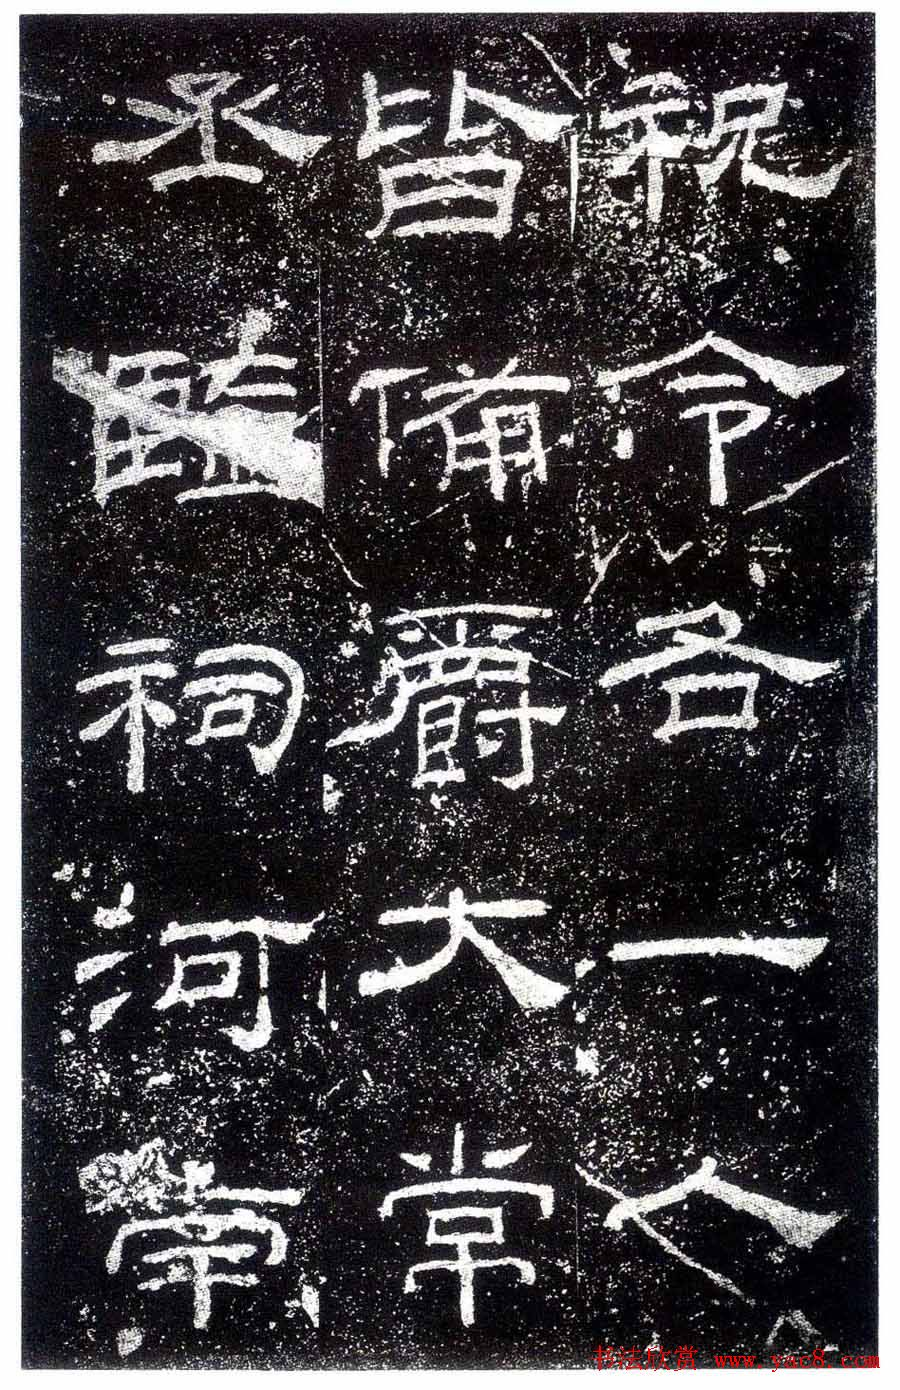 祝令各一人
皆備爵大常
丞監祠河南
书法欣赏 www.yac8.com